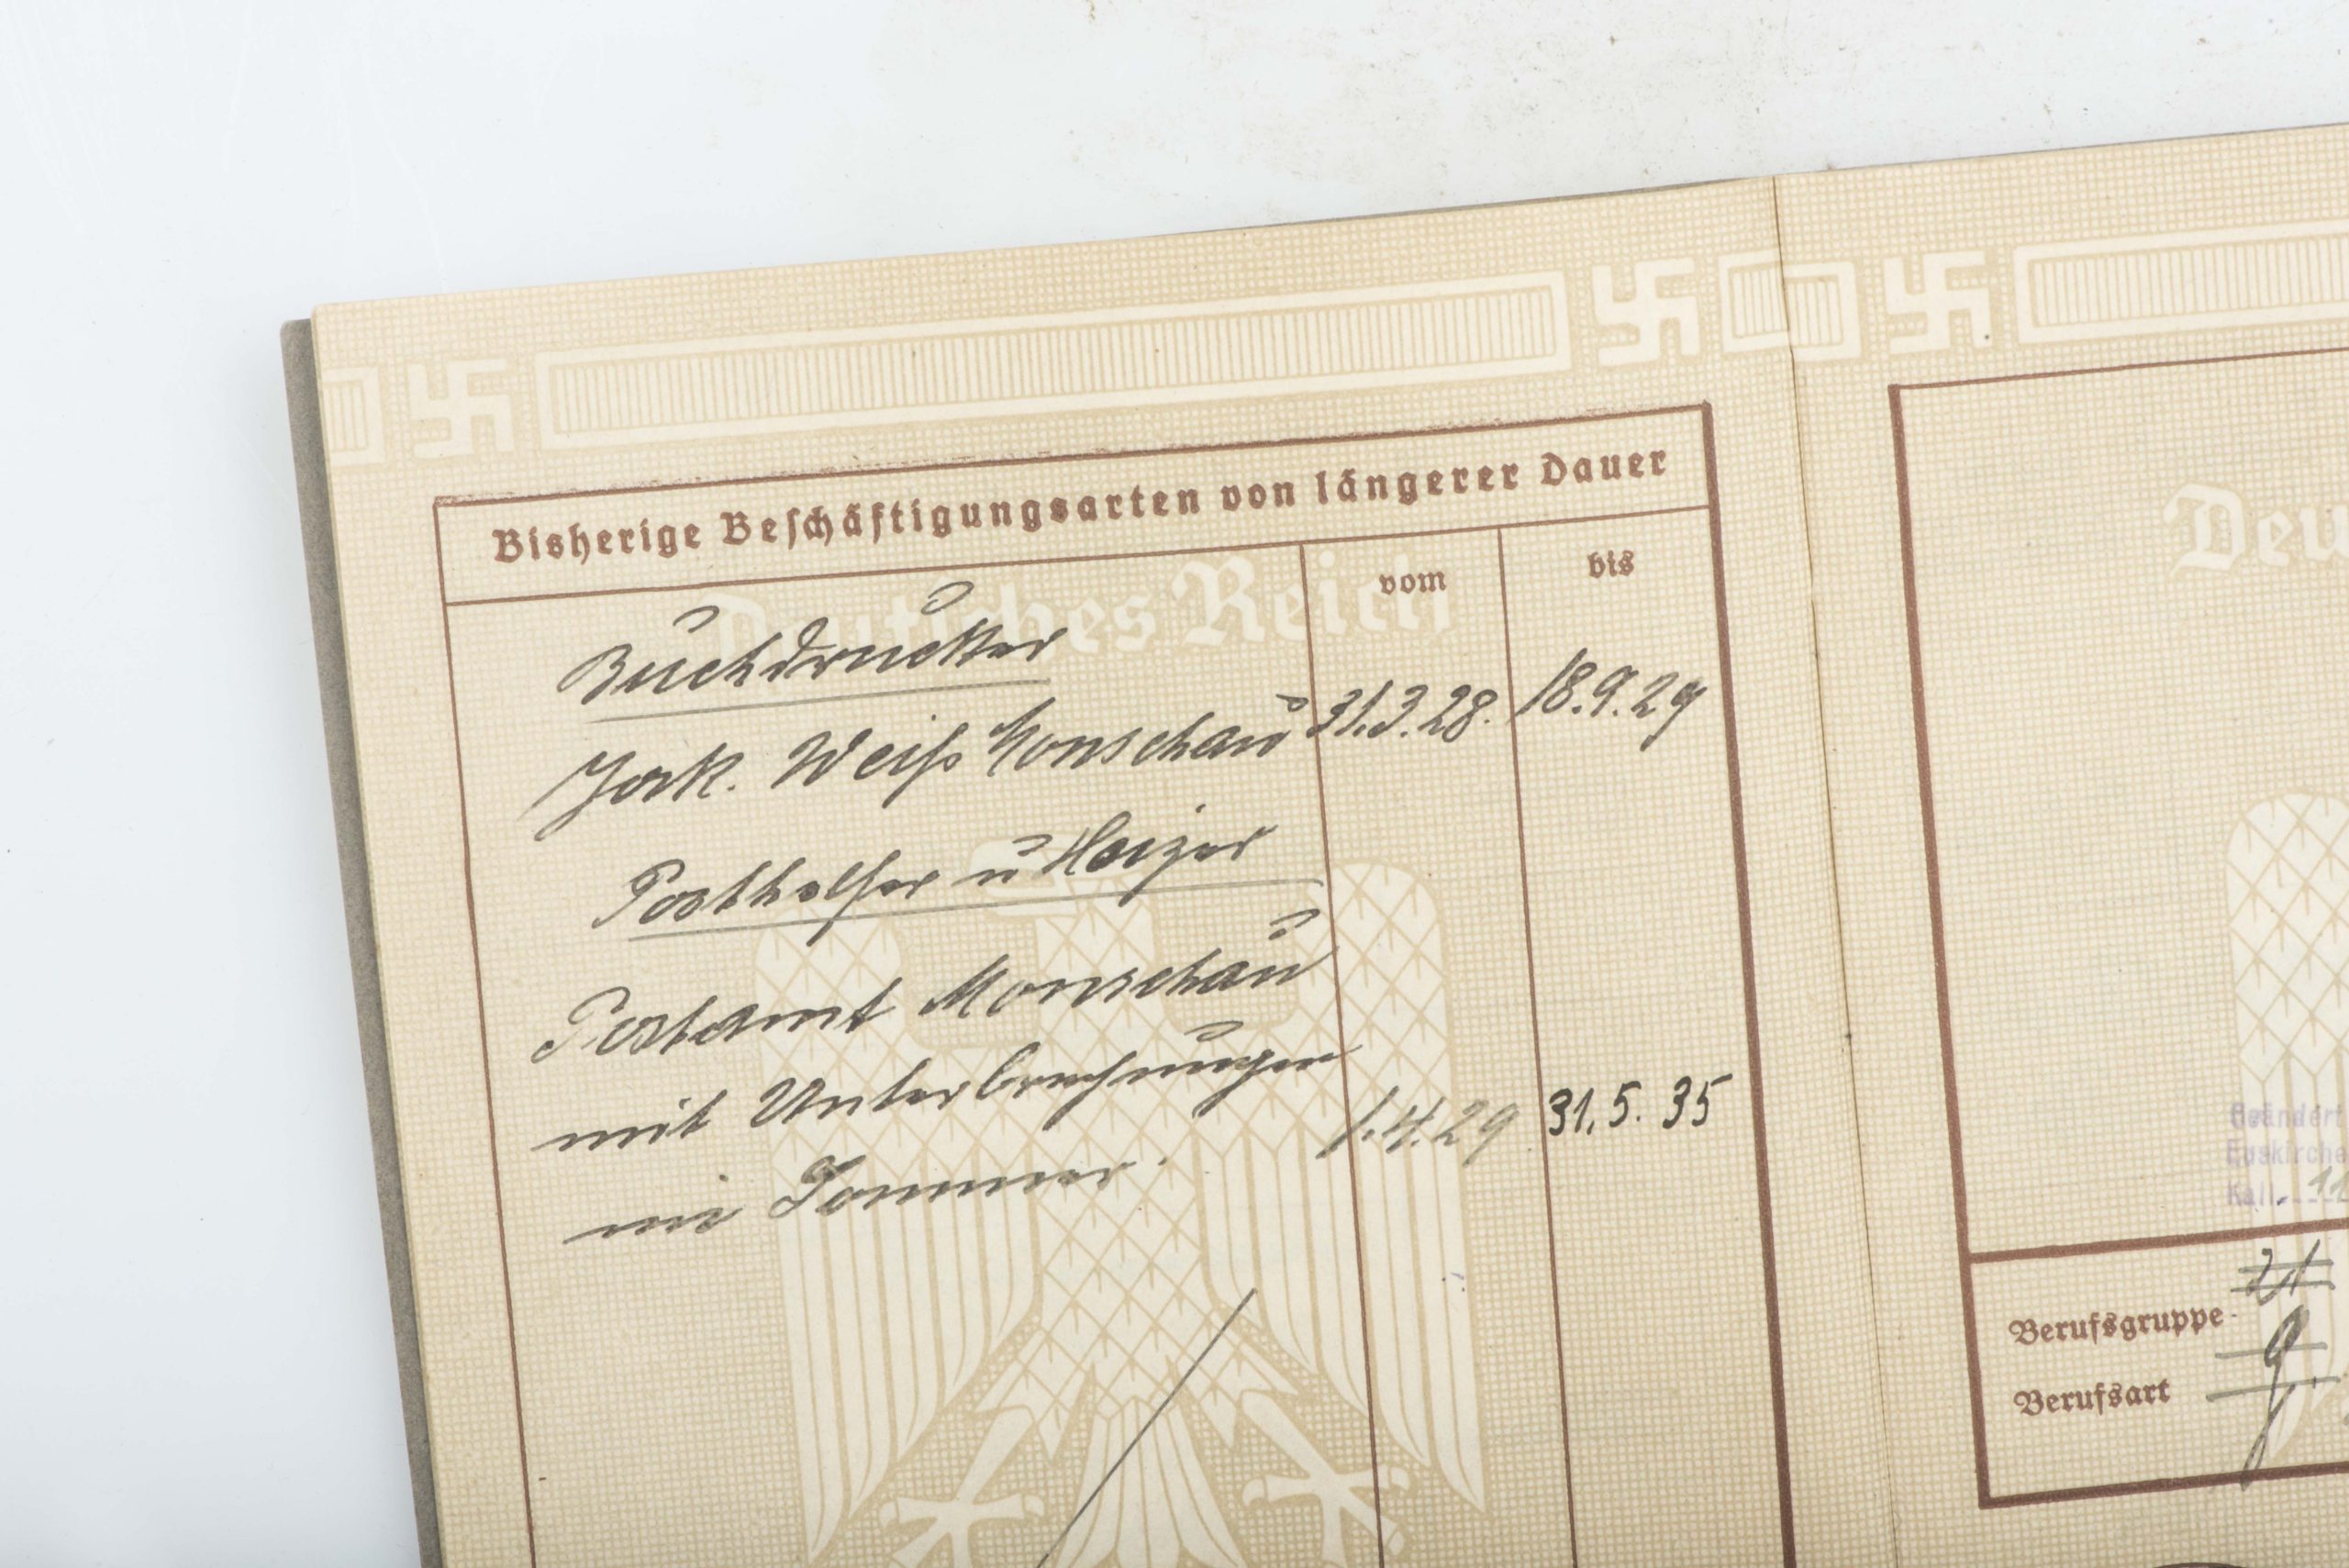 Bisherige Beschäftigungsarten von längerer Dauer
vom
bis
Deutsches Reich
Buchdrucker
Weiß Monschau 31.3.28. 18.9.29
Posthelfer u Heizer
Postamt Monschau
mit Unterbrechungen
im Sommer. 1.4.29 31.5.35
Deu
Geändert
Euskirche
Kall. 11
Berufsgruppe 21
Berufsart 9